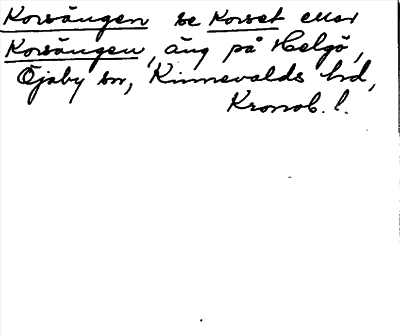 Korsängen se Korset eller
Korsängen, äng på Helgö,
Öjaby sn, Kinnevalds hd,
Kronob. l.